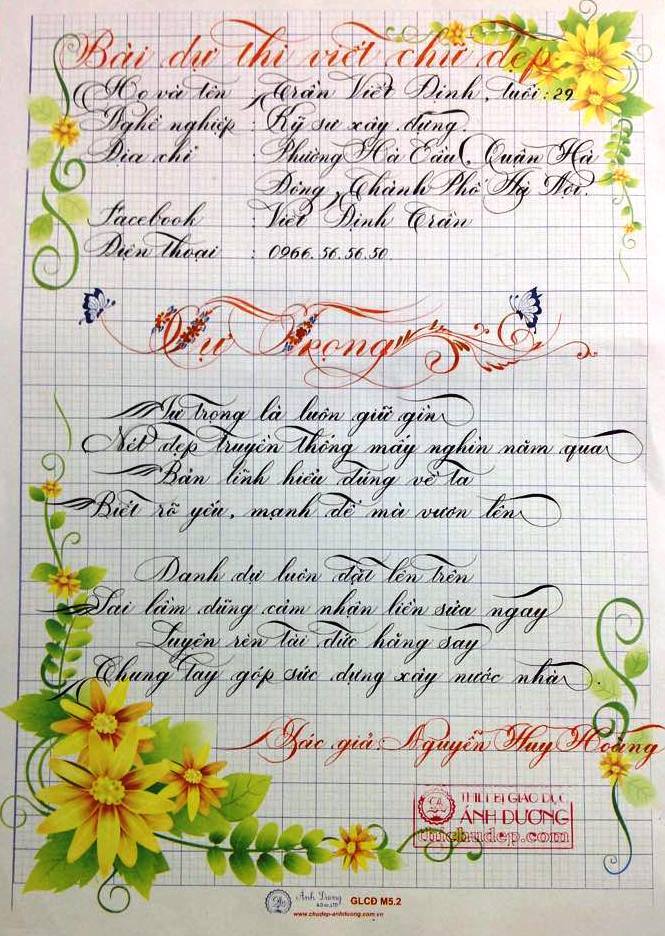 Bài dự thi viết chữ đẹp
Họ và tên : Trần Viết Định, tuổi: 29
Nghề nghiệp : Kỹ sư xây dựng.
Địa chỉ : Phường Hà Cầu, Quận Hà
Đông, Thành Phố Hà Nội.
Facebook : Viết Định Trần
Điện thoại : 0966.56.56.50
Tự Trọng
Tự trọng là luôn giữ gìn
Nét đẹp truyền thống mấy nghìn năm qua
Bản lĩnh hiểu đúng về ta
Biết rõ yếu, mạnh để mà vươn lên
Danh dự luôn đặt lên trên
Sai lầm dũng cảm nhận liền sửa ngay
Luyện rèn tài đức hăng say
Chung tay góp sức dựng xây nước nhà.
Tác giả: Nguyễn Huy Hoàng
THIẾT BỊ GIÁO DỤC
ÁNH DƯƠNG
Ánh Dương
GLCĐ M5.2
www.chudep-anhduong.com.vn